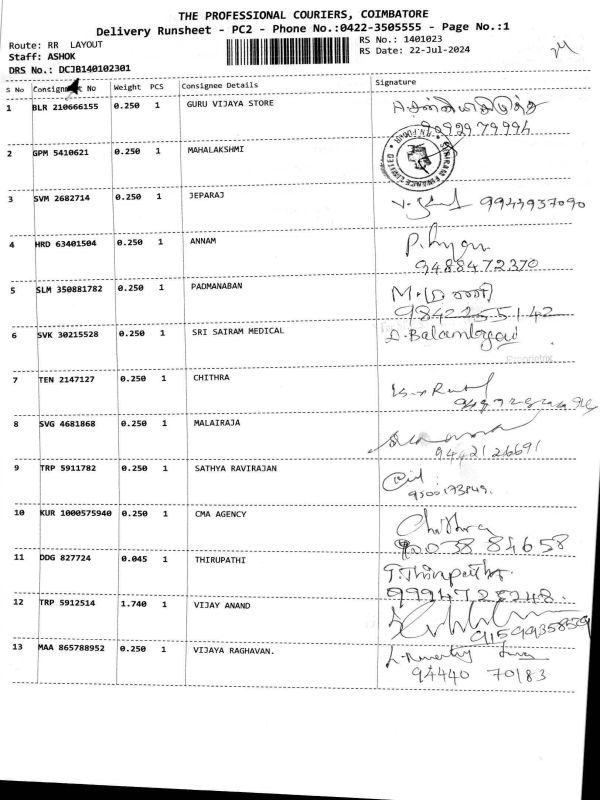 THE PROFESSIONAL COURIERS, COIMBATORE
Delivery Runsheet - PC2 - Phone No.:0422-3505555 - Page No.:1
Route: RR LAYOUT
Staff: ASHOK
DRS No.: DCJB140102301
RS No.: 1401023
RS Date: 22-Jul-2024
S No Consignment No Weight PCS Consignee Details Signature
1 BLR 210666155 0.250 1 GURU VIJAYA STORE
2 GPM 5410621 0.250 1 MAHALAKSHMI
3 SVM 2682714 0.250 1 JEPARAJ 9943937090
4 HRD 63401504 0.250 1 ANNAM
9488472370
5 SLM 350881782 0.250 1 PADMANABAN
9842255142
6 SVK 30215528 0.250 1 SRI SAIRAM MEDICAL
Proprietrix
7 TEN 2147127 0.250 1 CHITHRA
8 SVG 4681868 0.250 1 MALAIRAJA
9442126691
9 TRP 5911782 0.250 1 SATHYA RAVIRAJAN
10 KUR 1000575940 0.250 1 CMA AGENCY Chithra
11 DDG 827724 0.045 1 THIRUPATHI
12 TRP 5912514 1.740 1 VIJAY ANAND
9159935859
13 MAA 865788952 0.250 1 VIJAYA RAGHAVAN.
94440 70183